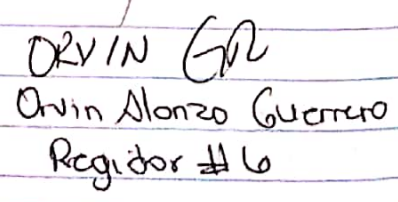 ORVIN GR
Orvin Alonzo Guerrero
Regidor #6